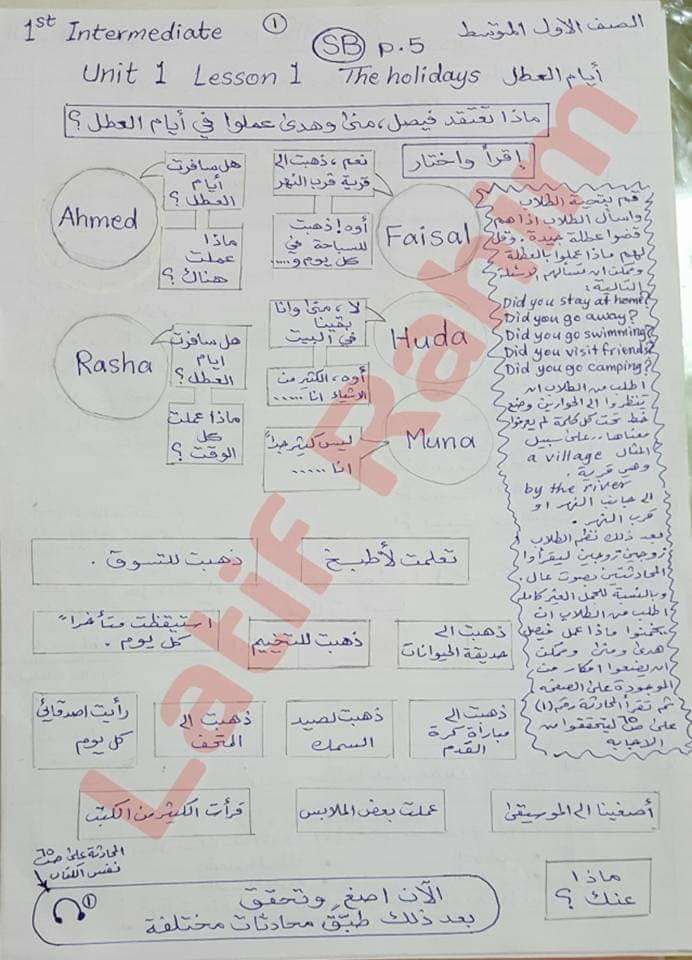 1st Intermediate
①
الصف الأول المتوسط
SB p.5
Unit 1 Lesson 1 The holidays أيام العطل
ماذا تعتقد فيصل، منى وهدى عملوا في أيام العطل؟
إقرأ واختار
Ahmed
هل سافرت
أيام
العطل؟
ماذا
عملت
هناك؟
نعم، ذهبت الى
قرية قرب النهر
أوه! ذهبت
للسباحة في
كل يوم و.....
Faisal
Rasha
هل سافرت
ايام
العطل؟
ماذا عملت
كل
الوقت؟
لا، منى وانا
بقينا
في البيت
أوه، الكثير من
الاشياء انا .....
Huda
ليس كثير جداً
انا .....
Muna
قم بتحية الطلاب
واسأل الطلاب اذا هم
قضوا عطلة جيدة. وقل
لهم ماذا عملوا بالعطلة
وممكن ان تسألهم الاسئلة
التالية:
Did you stay at home?
Did you go away?
Did you go swimming?
Did you visit friends?
Did you go camping?
اطلب من الطلاب ان
ينظروا الى الحوارين وضع
خط تحت كل كلمة لم يعرفوا
معناها.. على سبيل
المثال a village
وهي قرية.
by the river
الى جانب النهر او
قرب النهر.
بعد ذلك نظم الطلاب
زوجين زوجين ليقرأوا
المحادثتين بصوت عال.
وبالنسبة للجمل الغير كاملة
اطلب من الطلاب ان
يخمنوا ماذا عمل فيصل
هدى ومنى وممكن
ان يضعوا افكار من
الموجودة على الصفحة
ثم تقرأ المحادثة رقم (١)
على ص٦٥ ليتحققوا من
الاجابه
تعلمت لأطبخ
ذهبت للتسوق.
ذهبت الى
حديقة الحيوانات
ذهبت للتخييم
استيقظت متأخراً
كل يوم.
ذهبت الى
مباراة كرة
القدم
ذهبت لصيد
السمك
ذهبت الى
المتحف
رأيت اصدقائي
كل يوم
أصغينا الى الموسيقى
عملت بعض الملابس
قرأت الكثير من الكتب
ماذا
عنك؟
المحادثة على ص٦٥
نفس الكتاب
①
الآن اصغِ وتحقق
بعد ذلك طبّق محادثات مختلفة
Latif Rahim